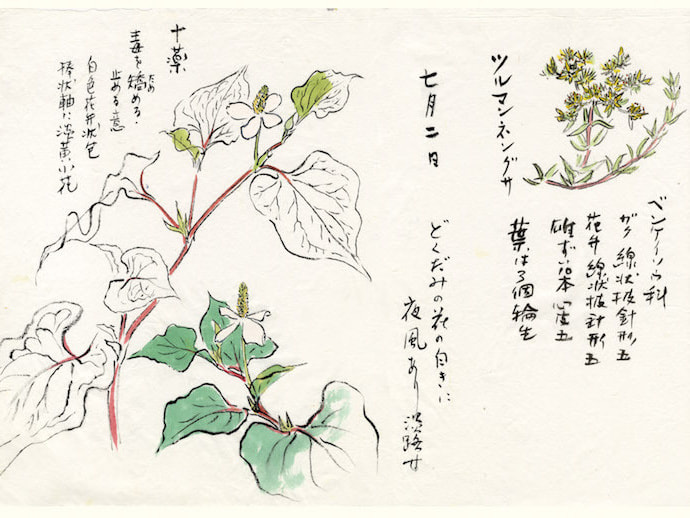 ツルマンネングサ
ベンケイソウ科
ガク 線状披針形 五
花弁線状披針形五
雄ずい10本 心皮五
葉は3個輪生
七月二日
どくだみの花の白きに
夜風あり 淡路女
十薬
毒を矯める・
ため
止める意
白色花弁状苞
棒状軸に淡黄小花